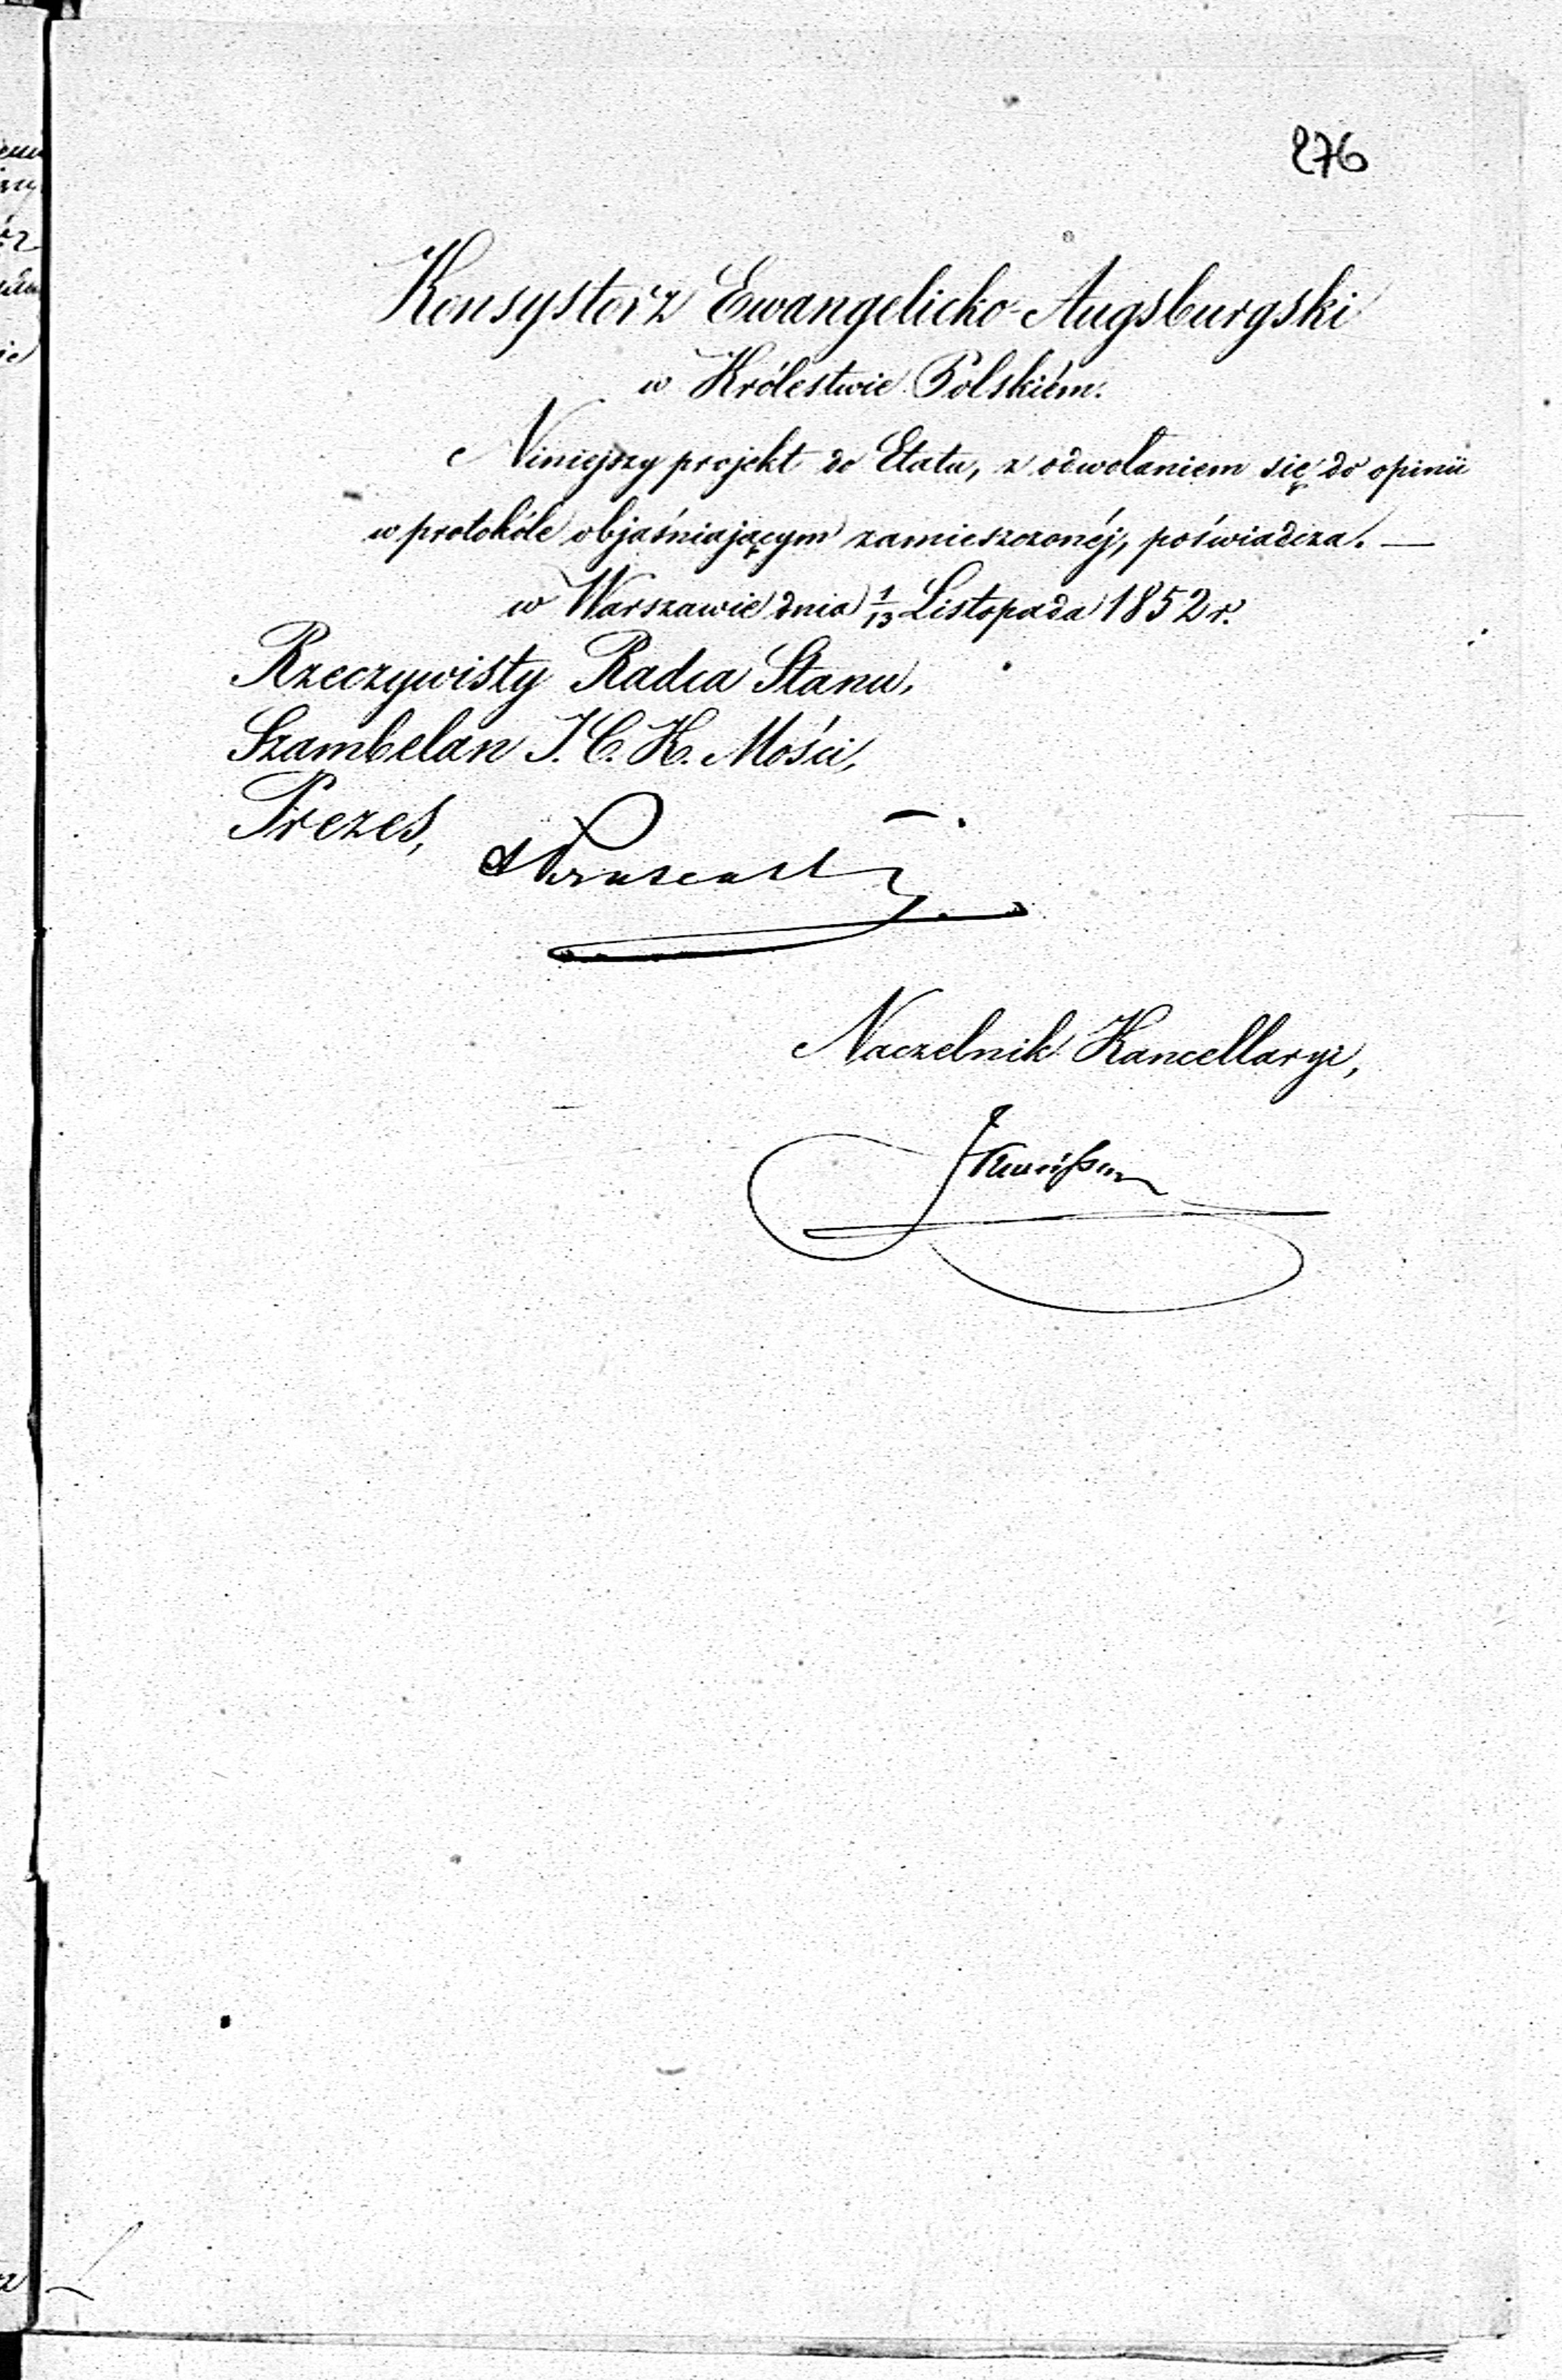 276
Konsystorz Ewangelicko-Augsburgski
w Królestwie Polskiém.
Niniejszy projekt do Etatu, z odwołaniem się do opinii
w protokóle objaśniającym zamieszczonéj, poświadcza. —
w Warszawie dnia 1/13 Listopada 1852 r.
Rzeczywisty Radca Stanu,
Szambelan J. C. K. Mości,
Prezes,
Naczelnik Kancellaryi,